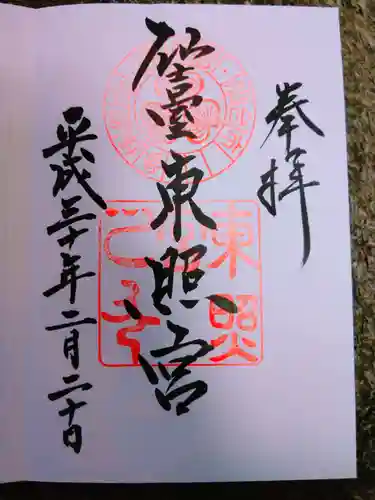 奉拝
仙臺東照宮
平成三十年二月二十日
東照